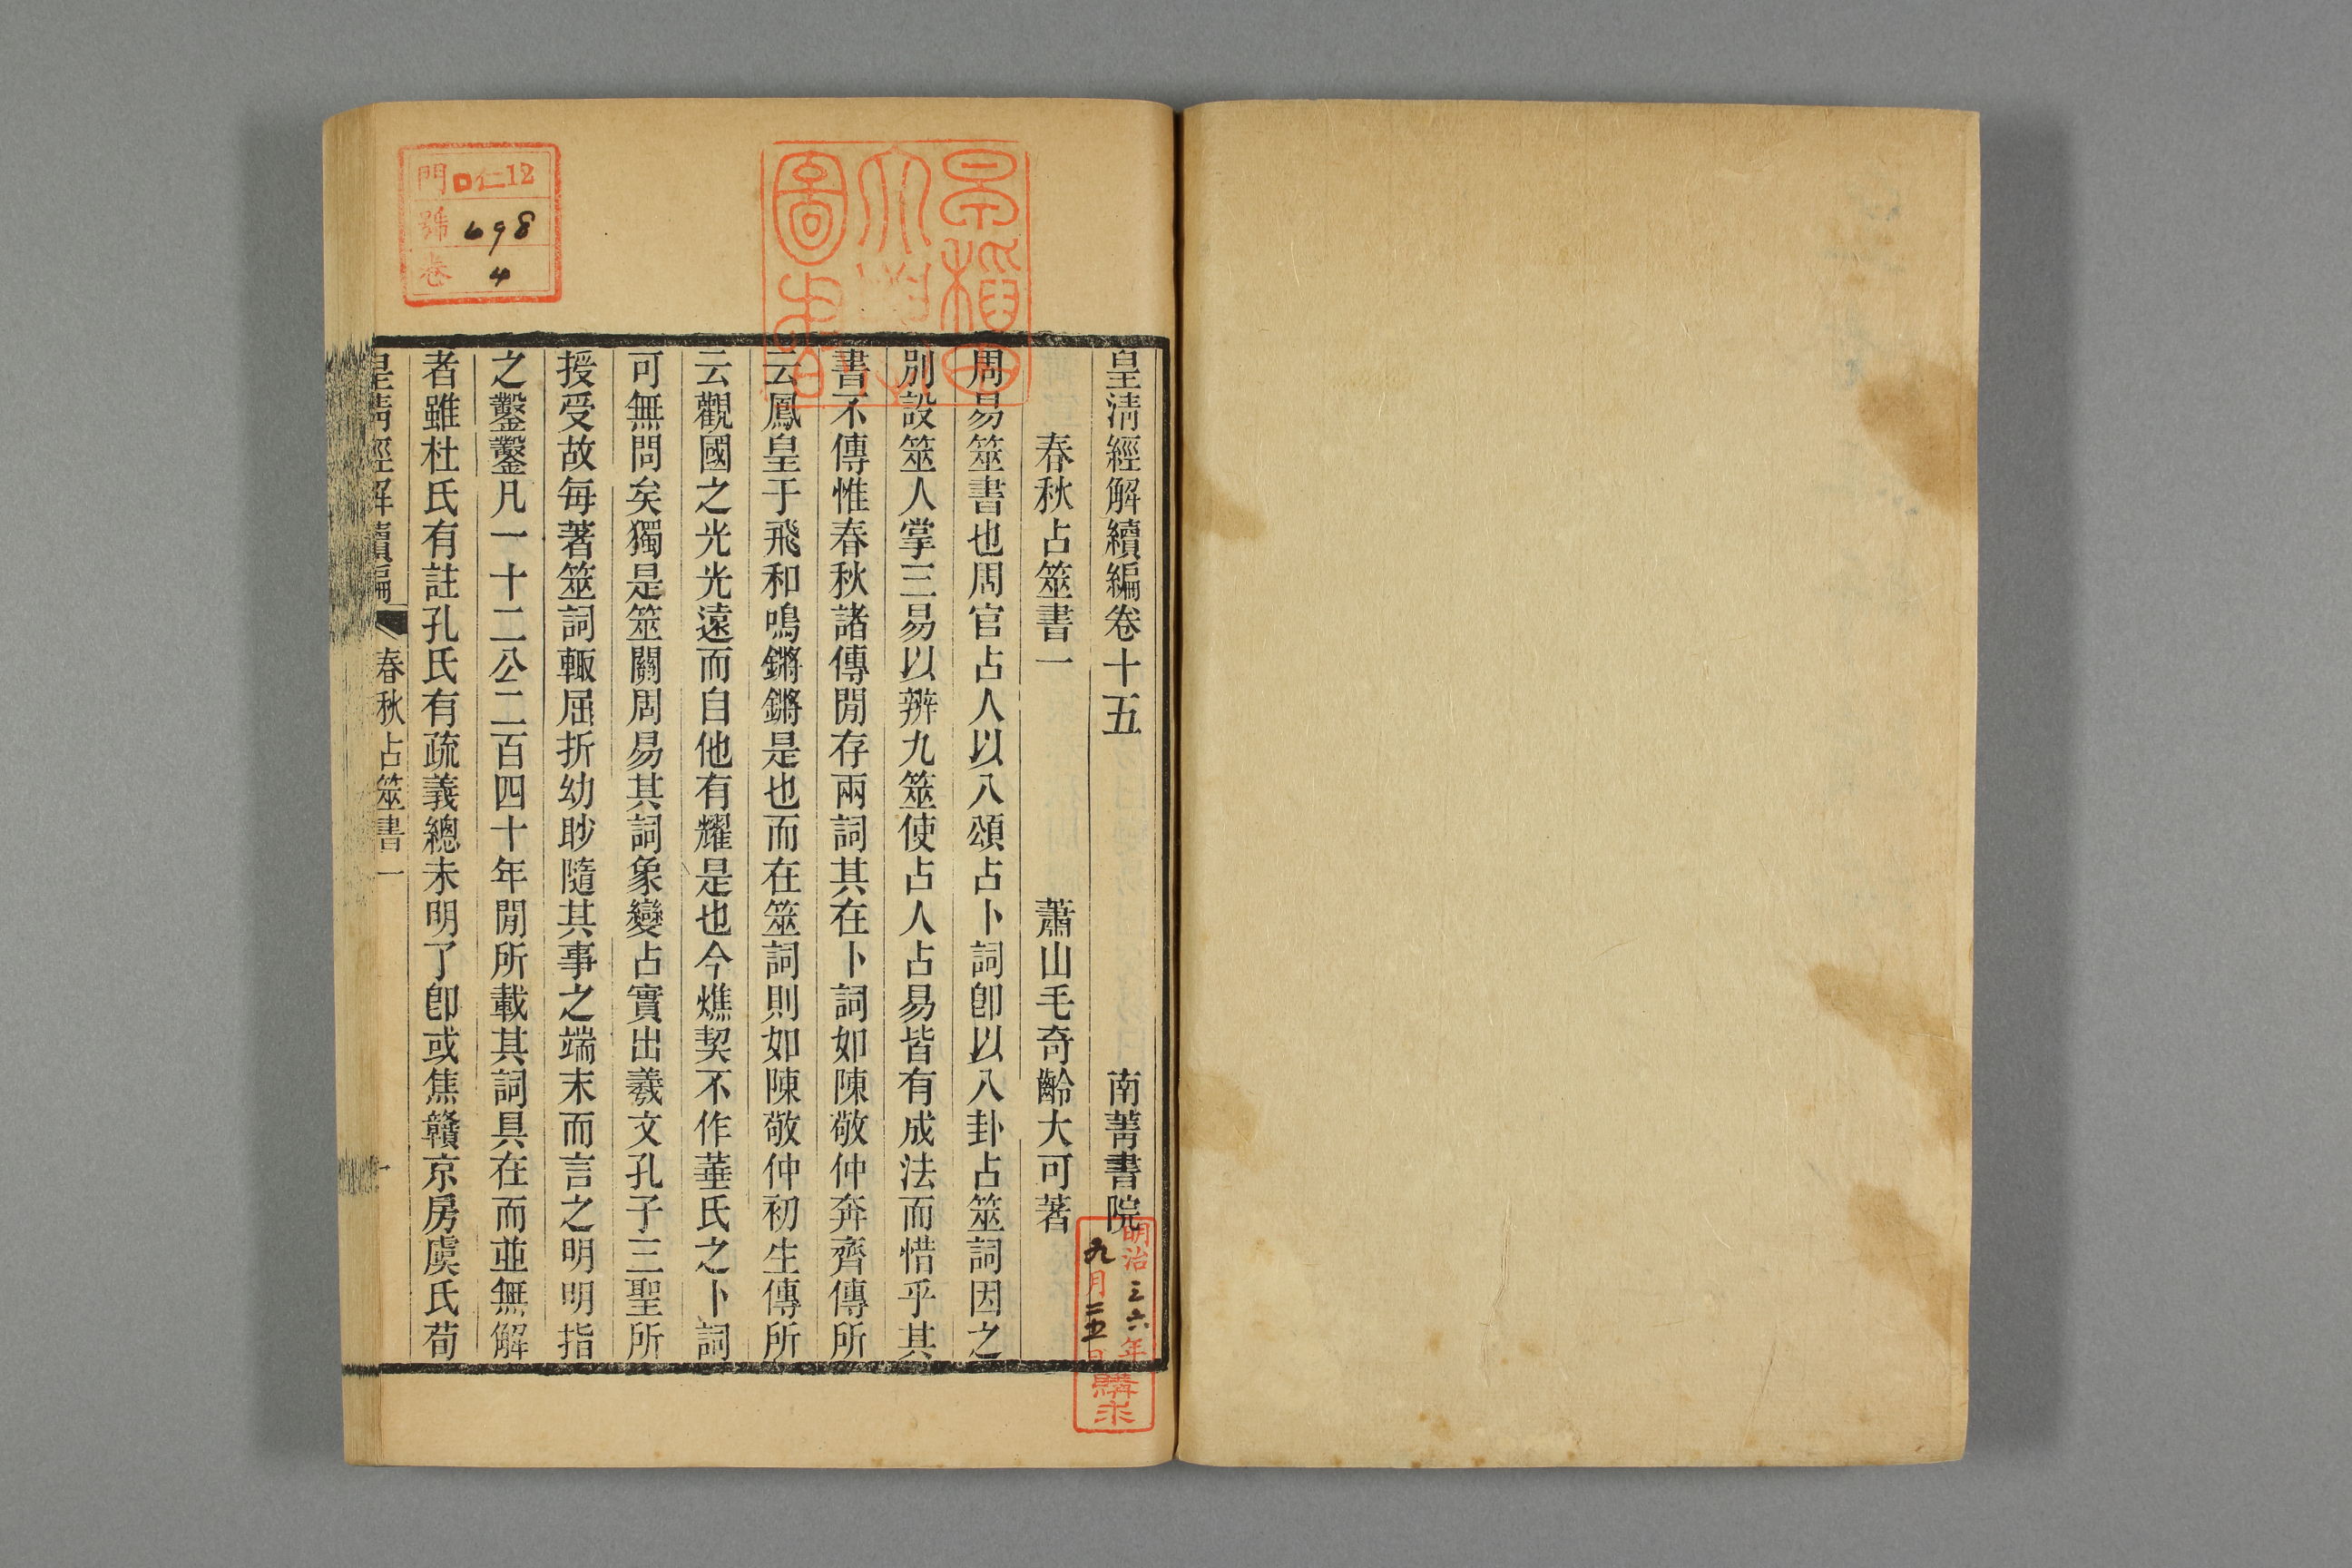 皇清經解續編卷十五 南菁書院
春秋占筮書一 蕭山毛奇齡大可著
周易筮書也周官占人以八頌占卜詞卽以八卦占筮詞因之
別設筮人掌三易以辨九筮使占人占易皆有成法而惜乎其
書不傳惟春秋諸傳閒存兩詞其在卜詞如陳敬仲奔齊傳所
云鳳皇于飛和鳴鏘鏘是也而在筮詞則如陳敬仲初生傳所
云觀國之光光遠而自他有耀是也今燋契不作菙氏之卜詞
可無問矣獨是筮關周易其詞象變占實出羲文孔子三聖所
授受故每著筮詞輙屈折幼眇隨其事之端末而言之明明指
之鑿鑿凡一十二公二百四十年閒所載其詞具在而並無解
者雖杜氏有註孔氏有疏義總未明了卽或焦贛京房虞氏荀
皇清經解續編 春秋占筮書一
早稻田大學圖書
門 ロ仁12
號 698
卷 4
明治三六年
九月二五日
購求